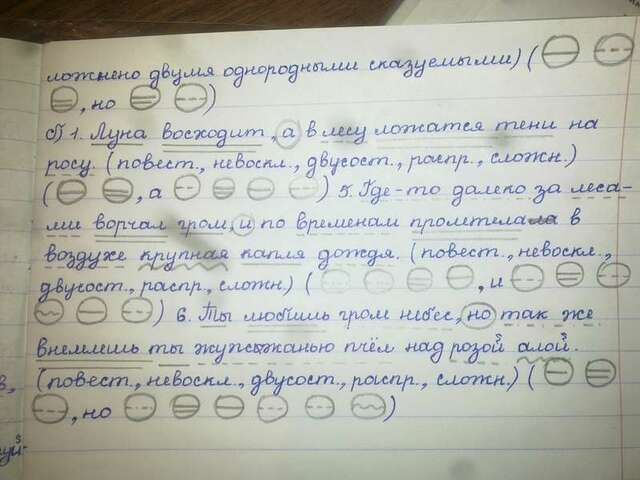 ложнено двумя однородными сказуемыми) (
, но )
б) 1. Луна восходит, а в лесу ложатся тени на
росу. (повест., невоскл., двусост., распр., сложн.)
( , а ) 5. Где-то далеко за леса-
ми ворчал гром, и по временам пролетела в
воздухе крупная капля дождя. (повест., невоскл.,
двусост., распр., сложн) ( , и
) 6. Ты любишь гром небес, но так же
внемлешь ты жужжанью пчёл над розой алой.
(повест., невоскл., двусост., распр., сложн.) (
, но )